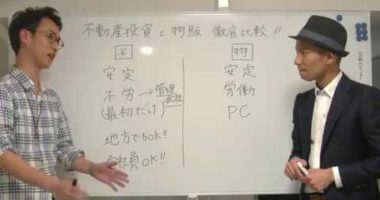 不動産投資と物販 徹底比較!!
不
安定
不労→管理会社
(最初だけ)
地方でもOK!!
会社員OK!!
物
安定
労働
PC